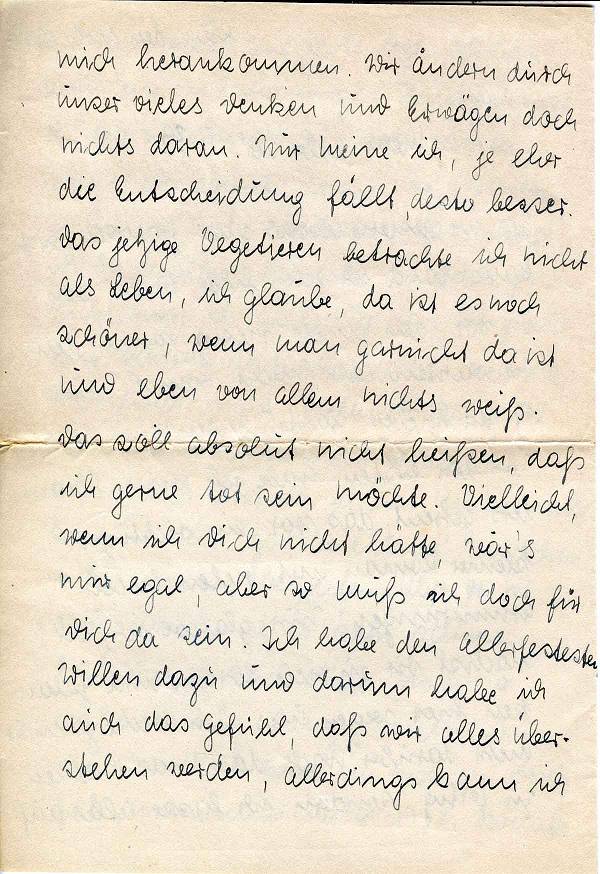 mich herankommen. Wir ändern durch
unser vieles Denken und Erwägen doch
nichts daran. Nur meine ich, je eher
die Entscheidung fällt, desto besser.
Das jetzige Vegetieren betrachte ich nicht
als Leben, ich glaube, da ist es noch
schöner, wenn man garnicht da ist
und eben von allem nichts weiß.
Das soll absolut nicht heißen, daß
ich gerne tot sein möchte. Vielleicht,
wenn ich Dich nicht hätte, wär's
mir egal, aber so muß ich doch für
Dich da sein. Ich habe den allerfesten
Willen dazu und darum habe ich
auch das Gefühl, daß wir alles über-
stehen werden, allerdings kann ich